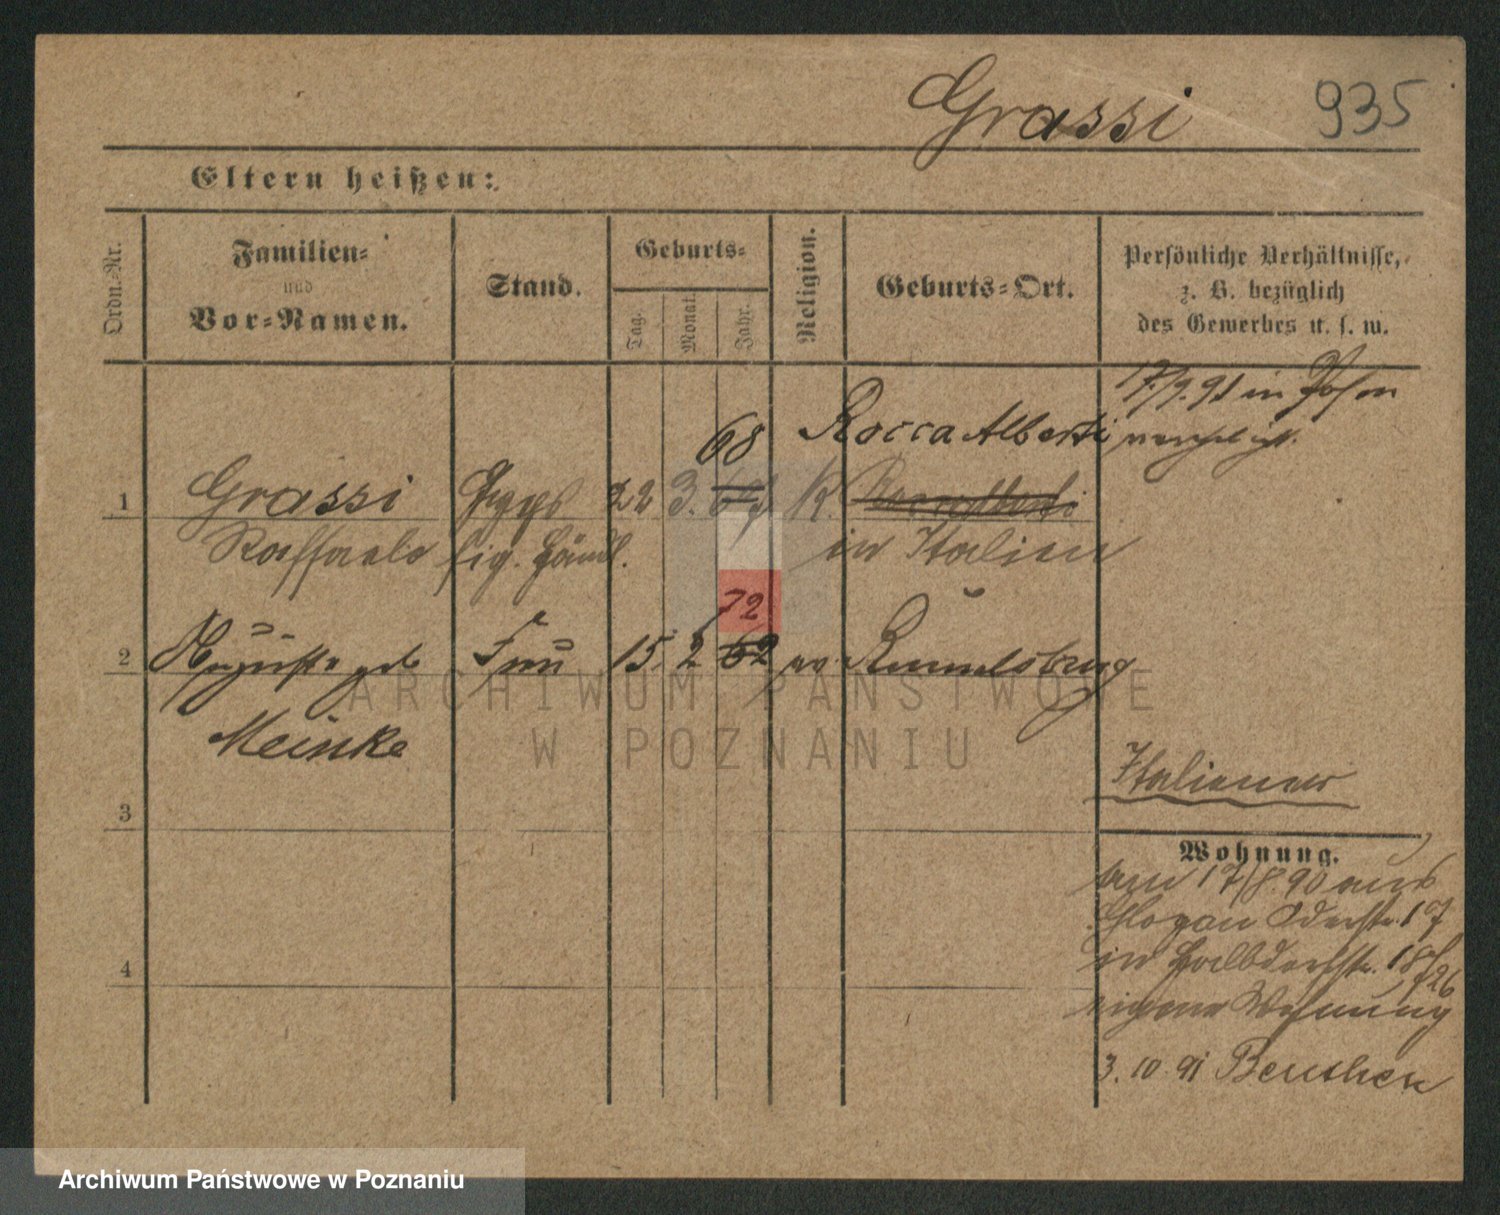 Grassi 935
Eltern heißen:
Ordn.-Nr.
Familien-
und
Vor-Namen.
Stand.
Geburts-
Tag.
Monat.
Jahr.
Religion.
Geburts-Ort.
Persönliche Verhältnisse,
z. B. bezüglich
des Gewerbes u. s. w.
17./9.91 in Posen
verehelicht.
68
Rocca Alberti
1 Grassi Gyps 22 3. K.
Raffaelo fig. Händl. in Italien
72
2 Auguste geb Frau 15. 2 62 ev. Rummelsburg
Meinke
Italiener
3
Wohnung.
am 17/8.90 aus
Glogau Oderstr. 17
in Halbdorfstr. 18/26
eigene Wohnung
4
3. 10. 91 Beuthen
ARCHIWUM PAŃSTWOWE
W POZNANIU
Archiwum Państwowe w Poznaniu